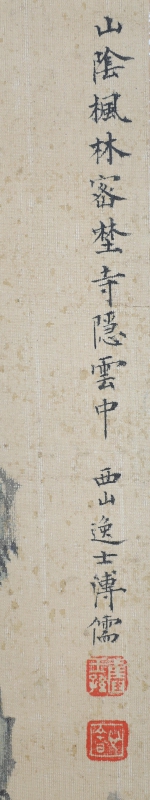 山陰楓林密埜寺隱雲中 西山逸士溥儒